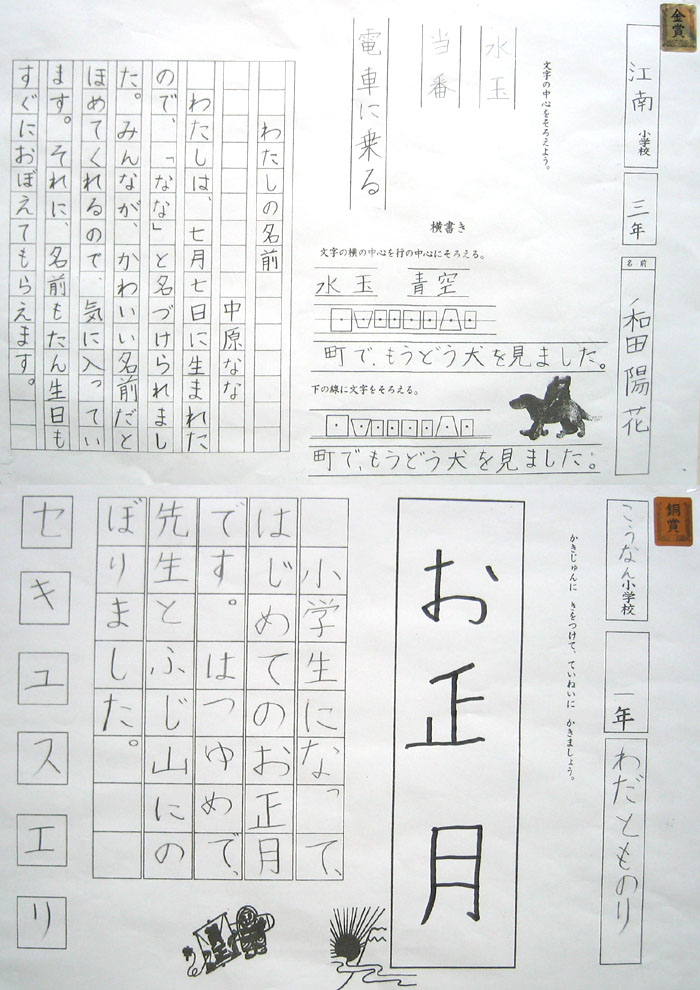 金賞
江南 小学校
三年
名前
和田陽花
文字の中心をそろえよう。
水玉
当番
電車に乗る
横書き
文字の横の中心を行の中心にそろえる。
水玉 青空
町で、もうどう犬を見ました。
下の線に文字をそろえる。
町で、もうどう犬を見ました。
わたしの名前
中原なな
わたしは、七月七日に生まれた
ので、「なな」と名づけられまし
た。みんなが、かわいい名前だと
ほめてくれるので、気に入ってい
ます。それに、名前もたん生日も
すぐにおぼえてもらえます。
銅賞
こうなん小学校
一年
わだとものり
かきじゅんに きをつけて、ていねいに かきましょう。
お正月
小学生になって、
はじめてのお正月
です。はつゆめで、
先生とふじ山にの
ぼりました。
セキユスエリ